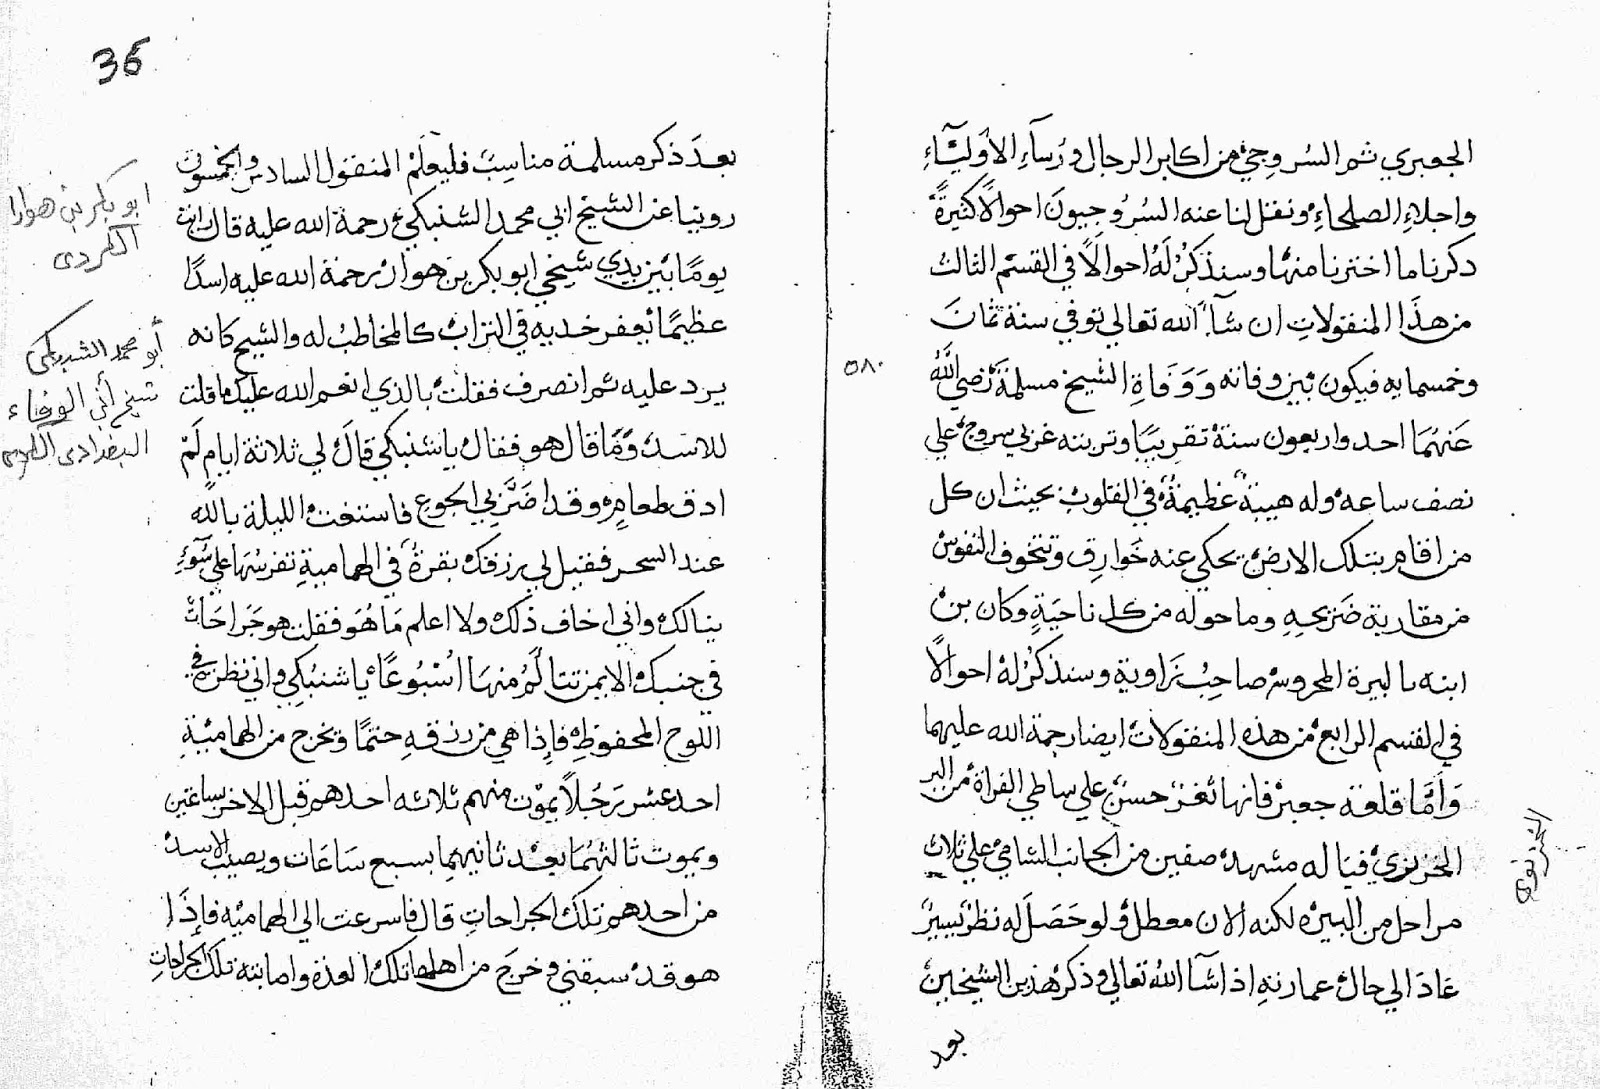 الجعبري ثم السروجي من اكابر الرجال ورساء الأوليآء
واجلاء الصلحاء ونقل لنا عنه السروجيون احوالاً كثيرةً
ذكرنا ما اخترنا منها وسنذكر له احوالاً في القسم الثالث
من هذا المنقولات ان شآء الله تعالي توفي سنة ثمان
وخمسمايه فيكون بين وفاته ووفاة الشيخ مسلمة رضي الله
٥٨٠
عنهما احد واربعون سنة تقريبًا وتربته غربي سروج علي
نصف ساعه وله هيبة عظيمة في القلوب بحيث ان كل
من اقام بتلك الارض يحكي عنه خوارق وتتخوف النفوس
من مقاربة ضريحه وما حوله من كل ناحية وكان بن
ابنه بالبيرة المحروسه صاحب زاوية وسنذكر له احوالاً
في القسم الرابع من هذه المنقولات ايضا رحمة الله عليهما
وأمّا قلعة جعبر فانها ثغر حسن علي ساطي الفراة من البر
الجزيزي قباله مشهد صفين من الجانب الشامي علي ثلاث
مراحل من البيره لكنه الان معطل ولو حصل له نظر يسير
عاد الي حال عمارته اذا شآ الله تعالي وذكر هذين الشيخين
بعد
36
بعد ذكر مسلمة مناسب فليعلم المنقول السادس والخمسون
روينا عن الشيخ ابي محمد الشنبكي رحمة الله عليه قال رايت
يومًا بين يدي شيخي ابو بكر بن هوار رحمة الله عليه اسدًا
عظيمًا يعفر خديه في التراب كالمخاطب له والشيخ كانه
يرد عليه ثم انصرف فقلت بالذي انعم الله عليك ما قلت
للاسد وما قال هو فقال يا شنبكي قال لي ثلاثة ايام لم
اذق طعام وقد اضر بي الجوع فاستغت الليلة بالله
عند السحر فقيل لي رزقك بقرة في الهمامية تفرسها علي سوء
ينالك واني اخاف ذلك ولا اعلم ما هو فقلت هو جراحات
في جنبك الايمن تتالم منها اسبوعًا يا شنبكي واني نظرت في
اللوح المحفوظ فإذا هي من رزقه حتمًا ويخرج من الهمامية
احد عشر رجلاً يموت منهم ثلاثه احدهم قبل الاخر بساعتين
ويموت ثالثهما بعد ثانيهما بسبع ساعات ويصيب الاسد
من احدهم تلك الجراحات قال فاسرعت الي الهماميه فإذا
هو قد سبقني وخرج من اهلها تلك العدة واصابته تلك الجراحات
ابو بكر بن هوارا
الكردى
أبو محمد الشنبكى
شيخ أبي الوفاء
البغدادى الكردى